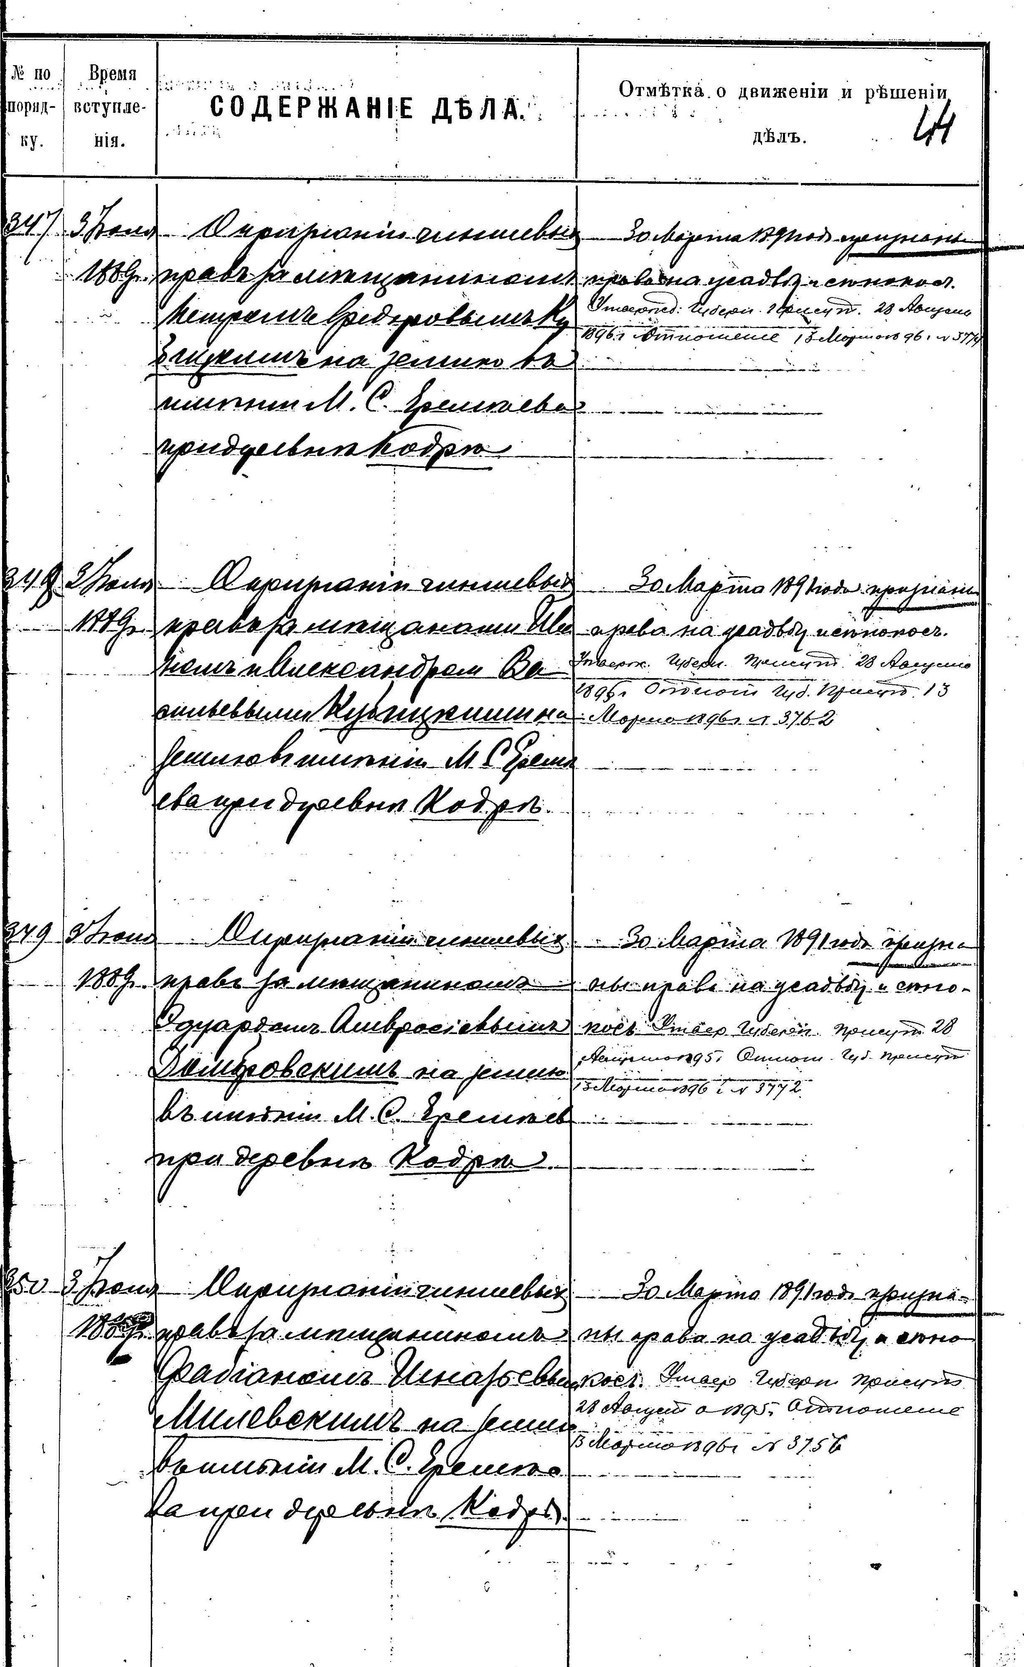 № по поряд- ку.
Время вступле- нія.
СОДЕРЖАНІЕ ДѢЛА.
Отмѣтка о движеніи и рѣшеніи
дѣлъ.
44
347 3 Іюня О признаніи чиншевыхъ
1889г. правъ за мѣщаниномъ
Петромъ Федоровымъ Ку
на землю въ
имѣніи М. С. Еремѣева
при деревнѣ Кодрѣ
30 Марта 1891 года признаны
права на усадьбу и сѣнокосъ.
Утвержд. Губерн. Присут. 28 Августа
1896г. Отношеніе 13 Марта 1896 г. №
348 3 Іюня О признаніи чиншевыхъ
1889г. права за мѣщанами Ива
номъ и Александромъ Ва
сильевыми на
землю въ имѣніи М С Ерем
ева при деревнѣ Кодрѣ.
30 Марта 1891 года признаны
права на усадьбу и сѣнокосъ.
Утверж. Губерн. Присут. 28 Августа
1896г. Отнош Губ. Присут. 13
Марта 1896г. № 3762
349 3 Іюня О признаніи чиншевыхъ
1889г. правъ за мѣщаниномъ
Эдуардомъ Амвросіевымъ
Домбровскимъ на землю
въ имѣніи М. С. Еремѣев
при деревнѣ Кодрѣ
30 Марта 1891 года призна
ны права на усадьбу и сѣно-
косъ. Утвер Губерн. Присут 28
Августа 1895г. Отнош. Губ. Присут
13 Марта 1896 г. № 3772
350 3 Іюня О признаніи чиншевыхъ
1889г. права за мѣщаниномъ
Фабіаномъ Игнатьевым
Милевскимъ на землю
въ имѣніи М. С. Еремѣ
ва при деревнѣ Кодрѣ.
30 Марта 1891 года призна-
ны права на усадьбу и сѣно
косъ. Утвер Губерн Присут
28 Августа 1895г. Отношеніе
13 Марта 1896г № 3756